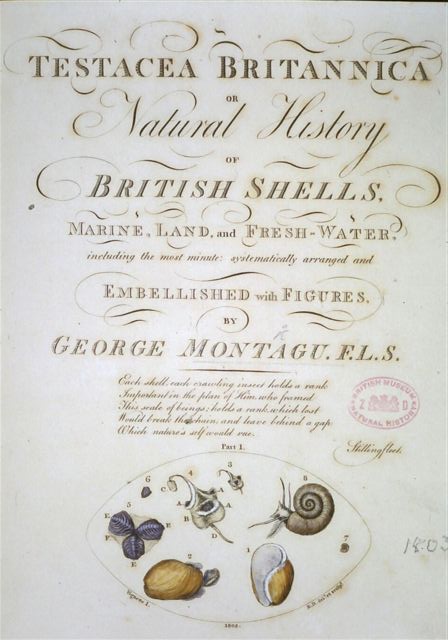 TESTACEA BRITANNICA
OR
Natural History
OF
BRITISH SHELLS,
MARINE, LAND, and FRESH-WATER,
including the most minute: systematically arranged and
EMBELLISHED with FIGURES.
BY
GEORGE MONTAGU. F.L.S.
Each shell, each crawling insect holds a rank
Important in the plan of Him, who framed
This scale of beings; holds a rank, which lost
Would break the chain, and leave behind a gap
Which nature's self would rue.
Stillingfleet.
BRITISH MUSEUM
NATURAL HISTORY
Part I.
4
3
8
6
C
A
A
5
E
E
F
A
B
D
E
2
1
7
1803
Vignette 1.